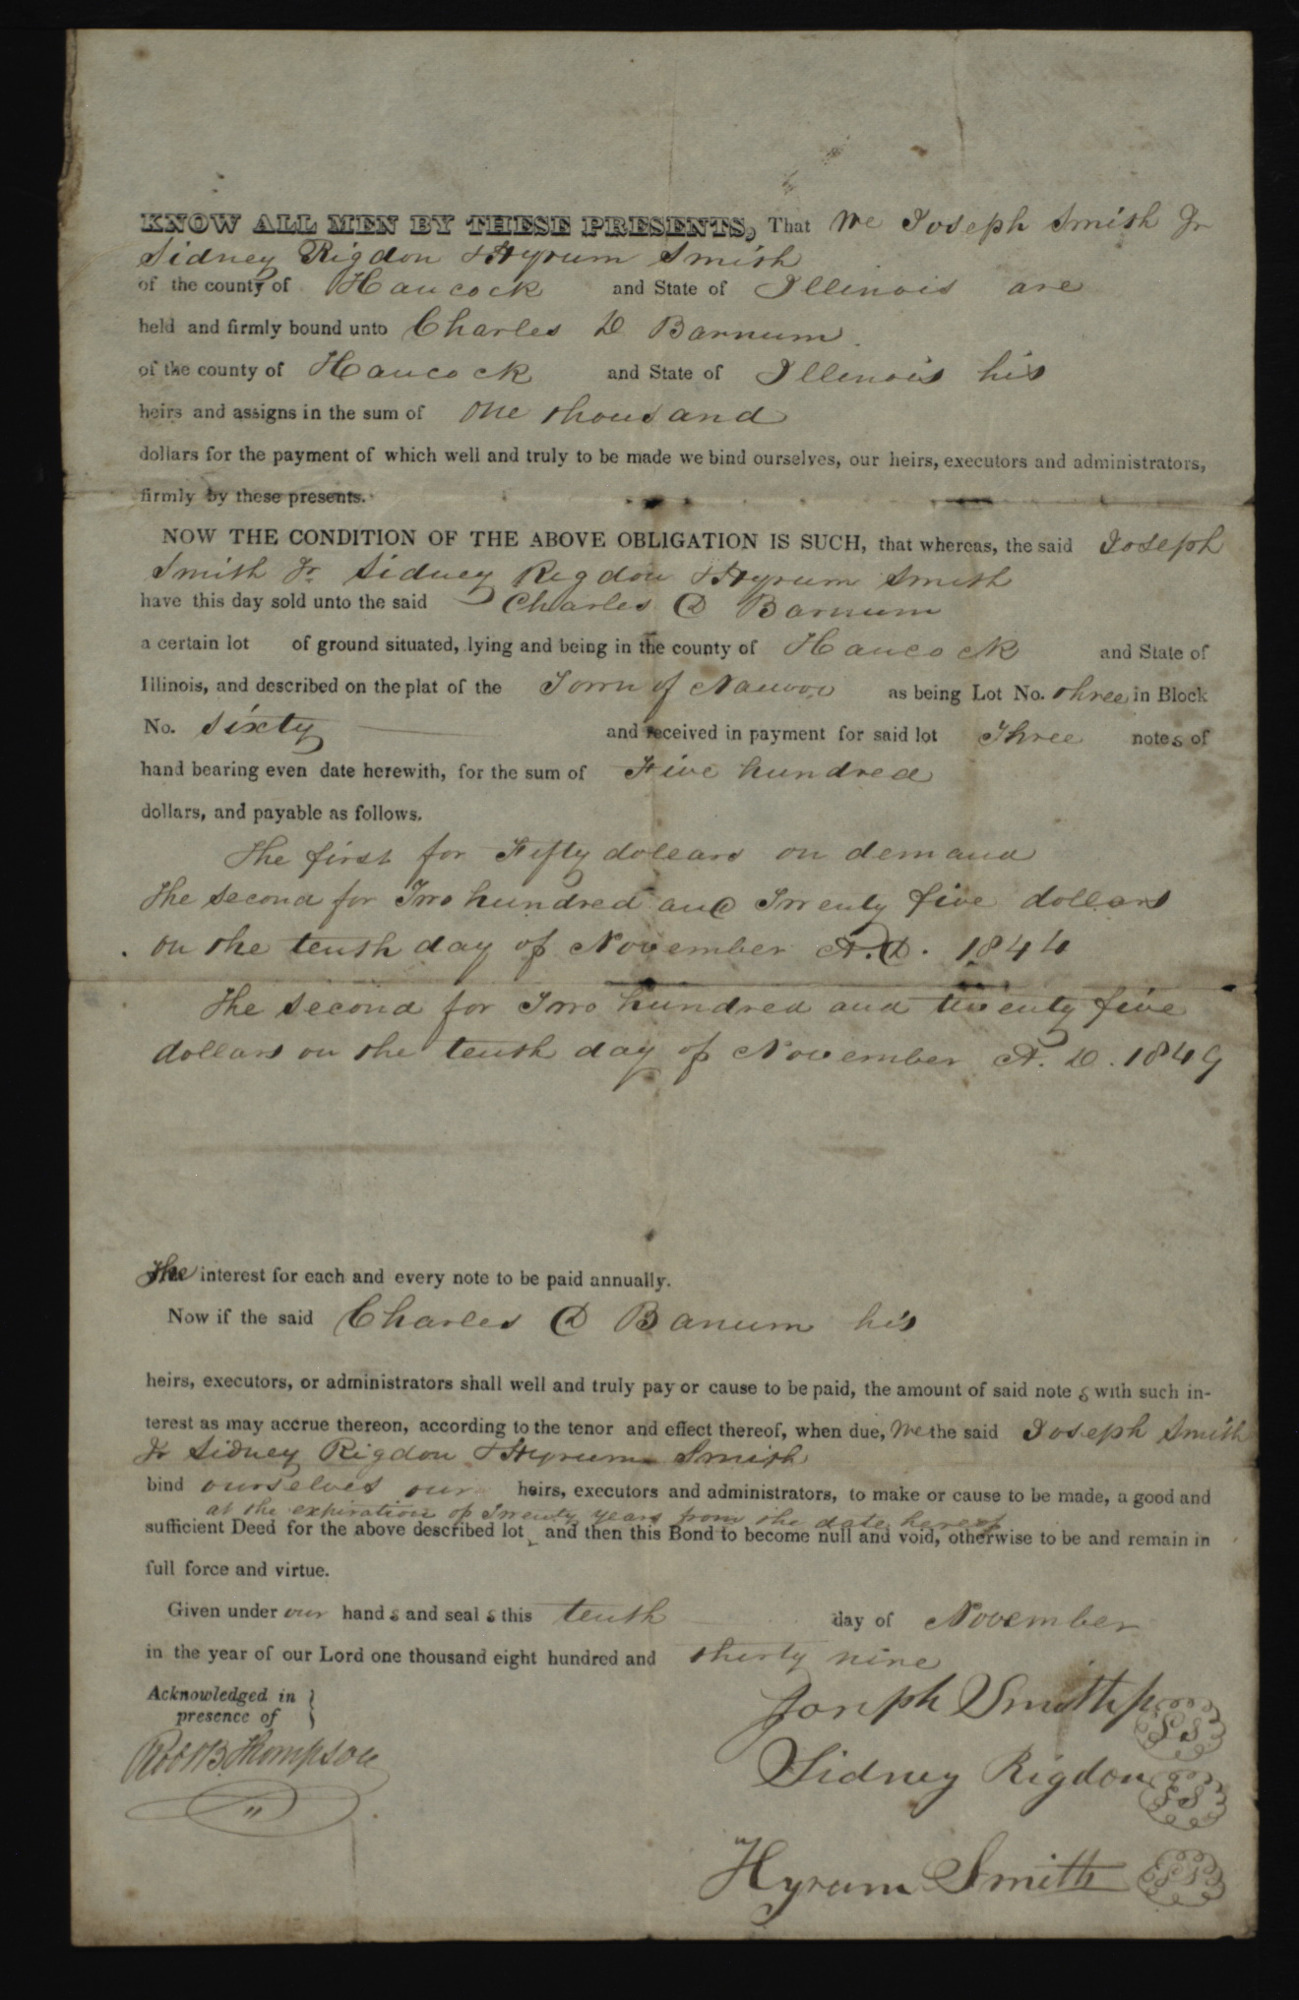 KNOW ALL MEN BY THESE PRESENTS, That We Joseph Smith Jr
Sidney Rigdon & Hyrum Smith
of the county of Hancock and State of Illinois are
held and firmly bound unto Charles D Barnum
of the county of Hancock and State of Illinois his
heirs and assigns in the sum of One thousand
dollars for the payment of which well and truly to be made we bind ourselves, our heirs, executors and administrators,
firmly by these presents.
NOW THE CONDITION OF THE ABOVE OBLIGATION IS SUCH, that whereas, the said Joseph
Smith Jr Sidney Rigdon & Hyrum Smith
have this day sold unto the said Charles D Barnum
a certain lot of ground situated, lying and being in the county of Hancock and State of
Illinois, and described on the plat of the Town of Nauvoo as being Lot No. three in Block
No. Sixty and received in payment for said lot Three notes of
hand bearing even date herewith, for the sum of Five hundred
dollars, and payable as follows.
The first for Fifty dollars on demand
The second for Two hundred and Twenty five dollars
on the tenth day of November A.D. 1844
The second for Two hundred and twenty five
dollars on the tenth day of November A. D. 1849
The interest for each and every note to be paid annually.
Now if the said Charles D Banum his
heirs, executors, or administrators shall well and truly pay or cause to be paid, the amount of said note s with such in-
terest as may accrue thereon, according to the tenor and effect thereof, when due, We the said Joseph Smith
Jr Sidney Rigdon & Hyrum Smith
bind ourselves our heirs, executors and administrators, to make or cause to be made, a good and
at the expiration of Twenty years from the date hereof
sufficient Deed for the above described lot and then this Bond to become null and void, otherwise to be and remain in
full force and virtue.
Given under our hand s and seal s this tenth day of November
in the year of our Lord one thousand eight hundred and thirty nine
Acknowledged in
presence of
Robt B. Thompson
Joseph Smith Jr
Sidney Rigdon
Hyrum Smith